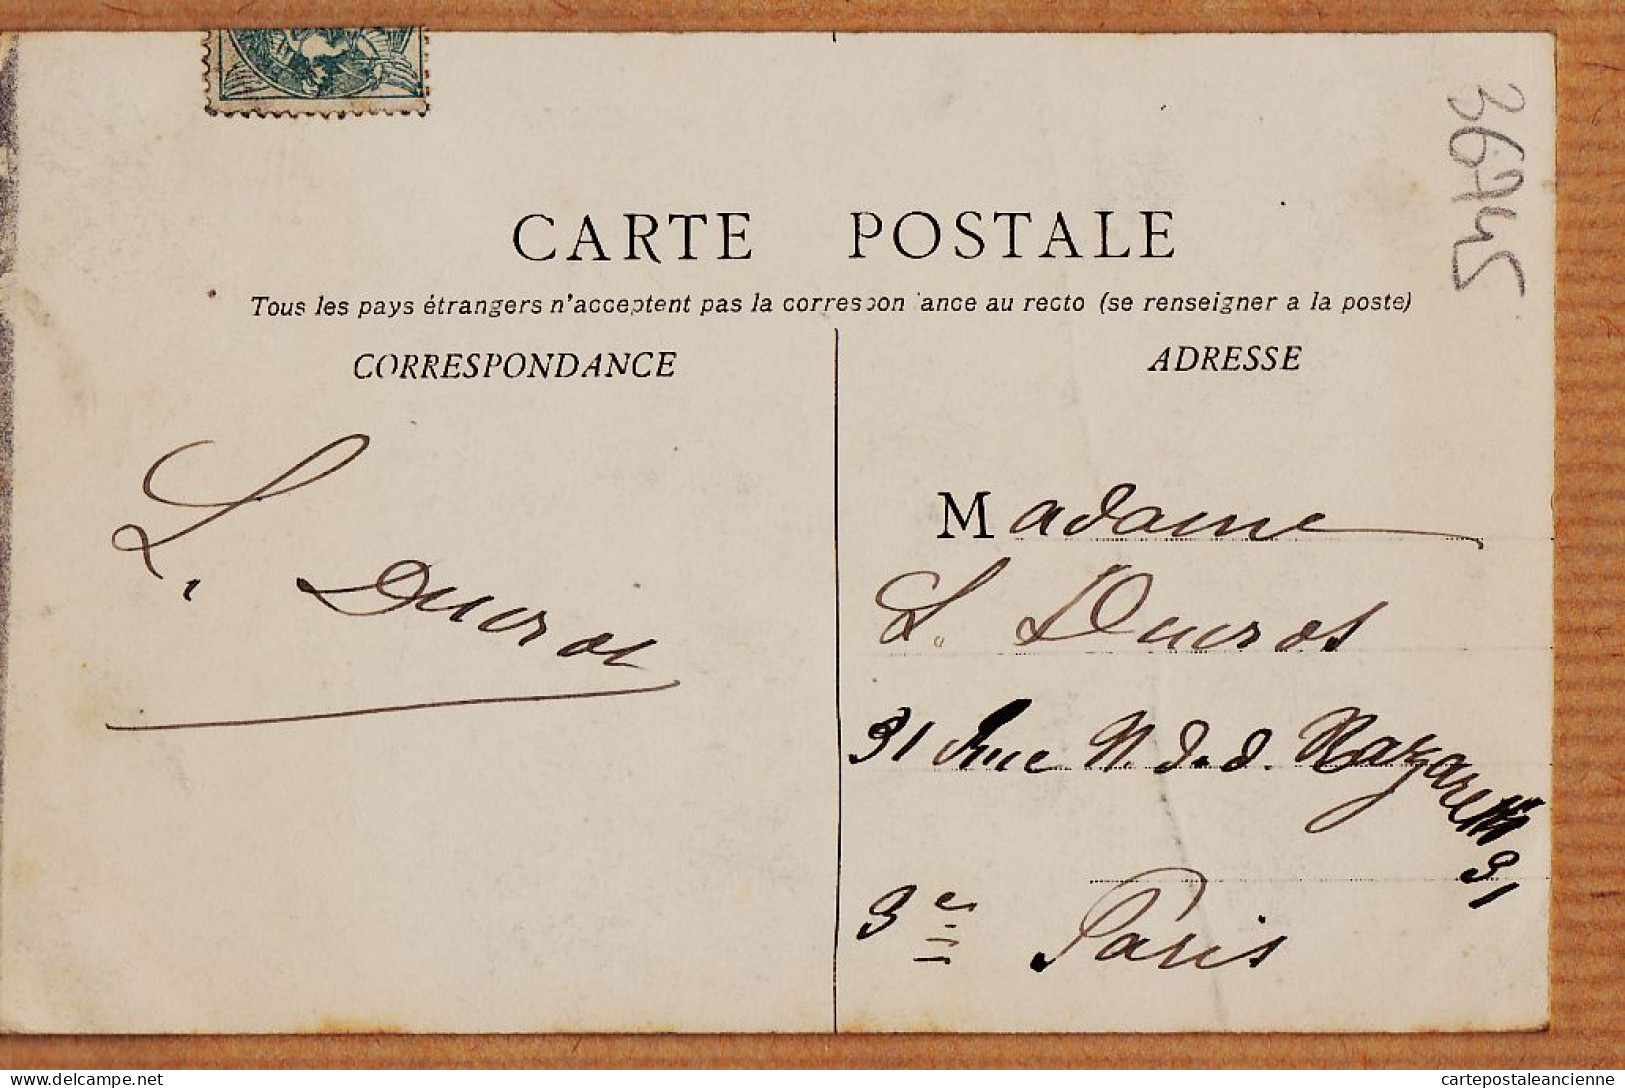 36745
CARTE POSTALE
Tous les pays étrangers n'acceptent pas la correspon ance au recto (se renseigner a la poste)
CORRESPONDANCE
ADRESSE
L. Ducros
Madame
L. Ducros
31 Rue N. d. d. Nazareth
31
3e Paris
delcampe.net
cartepostaleancienne